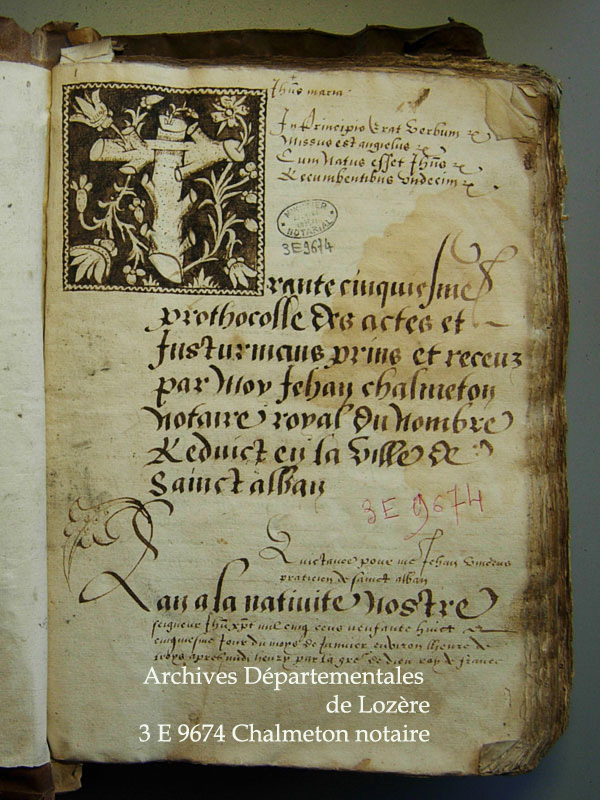 1
Jhus maria
In Principio Erat Verbum
Missus est angelus
Cum Natus esset Jhus
Recumbentibus Undecim
MINUTIER
NOTARIAL
3E9674
Trante cinquiesme
prothocolle des actes et
Insturmans prins et receuz
par Moy Jehan chalmeton
notaire royal du Nombre
Reduict en la Ville de
Sainct alban
3 E 9674
Quictance pour me Jehan
praticien de sainct alban
Lan a la nativite Nostre
seigneur Jhu xpt mil cinq cens nonante huict
cinquiesme Jour du moys de Janvier environ lheure de
troys apres midi henry par la gre de dieu roy de france
Archives Départementales
de Lozère
3 E 9674 Chalmeton notaire